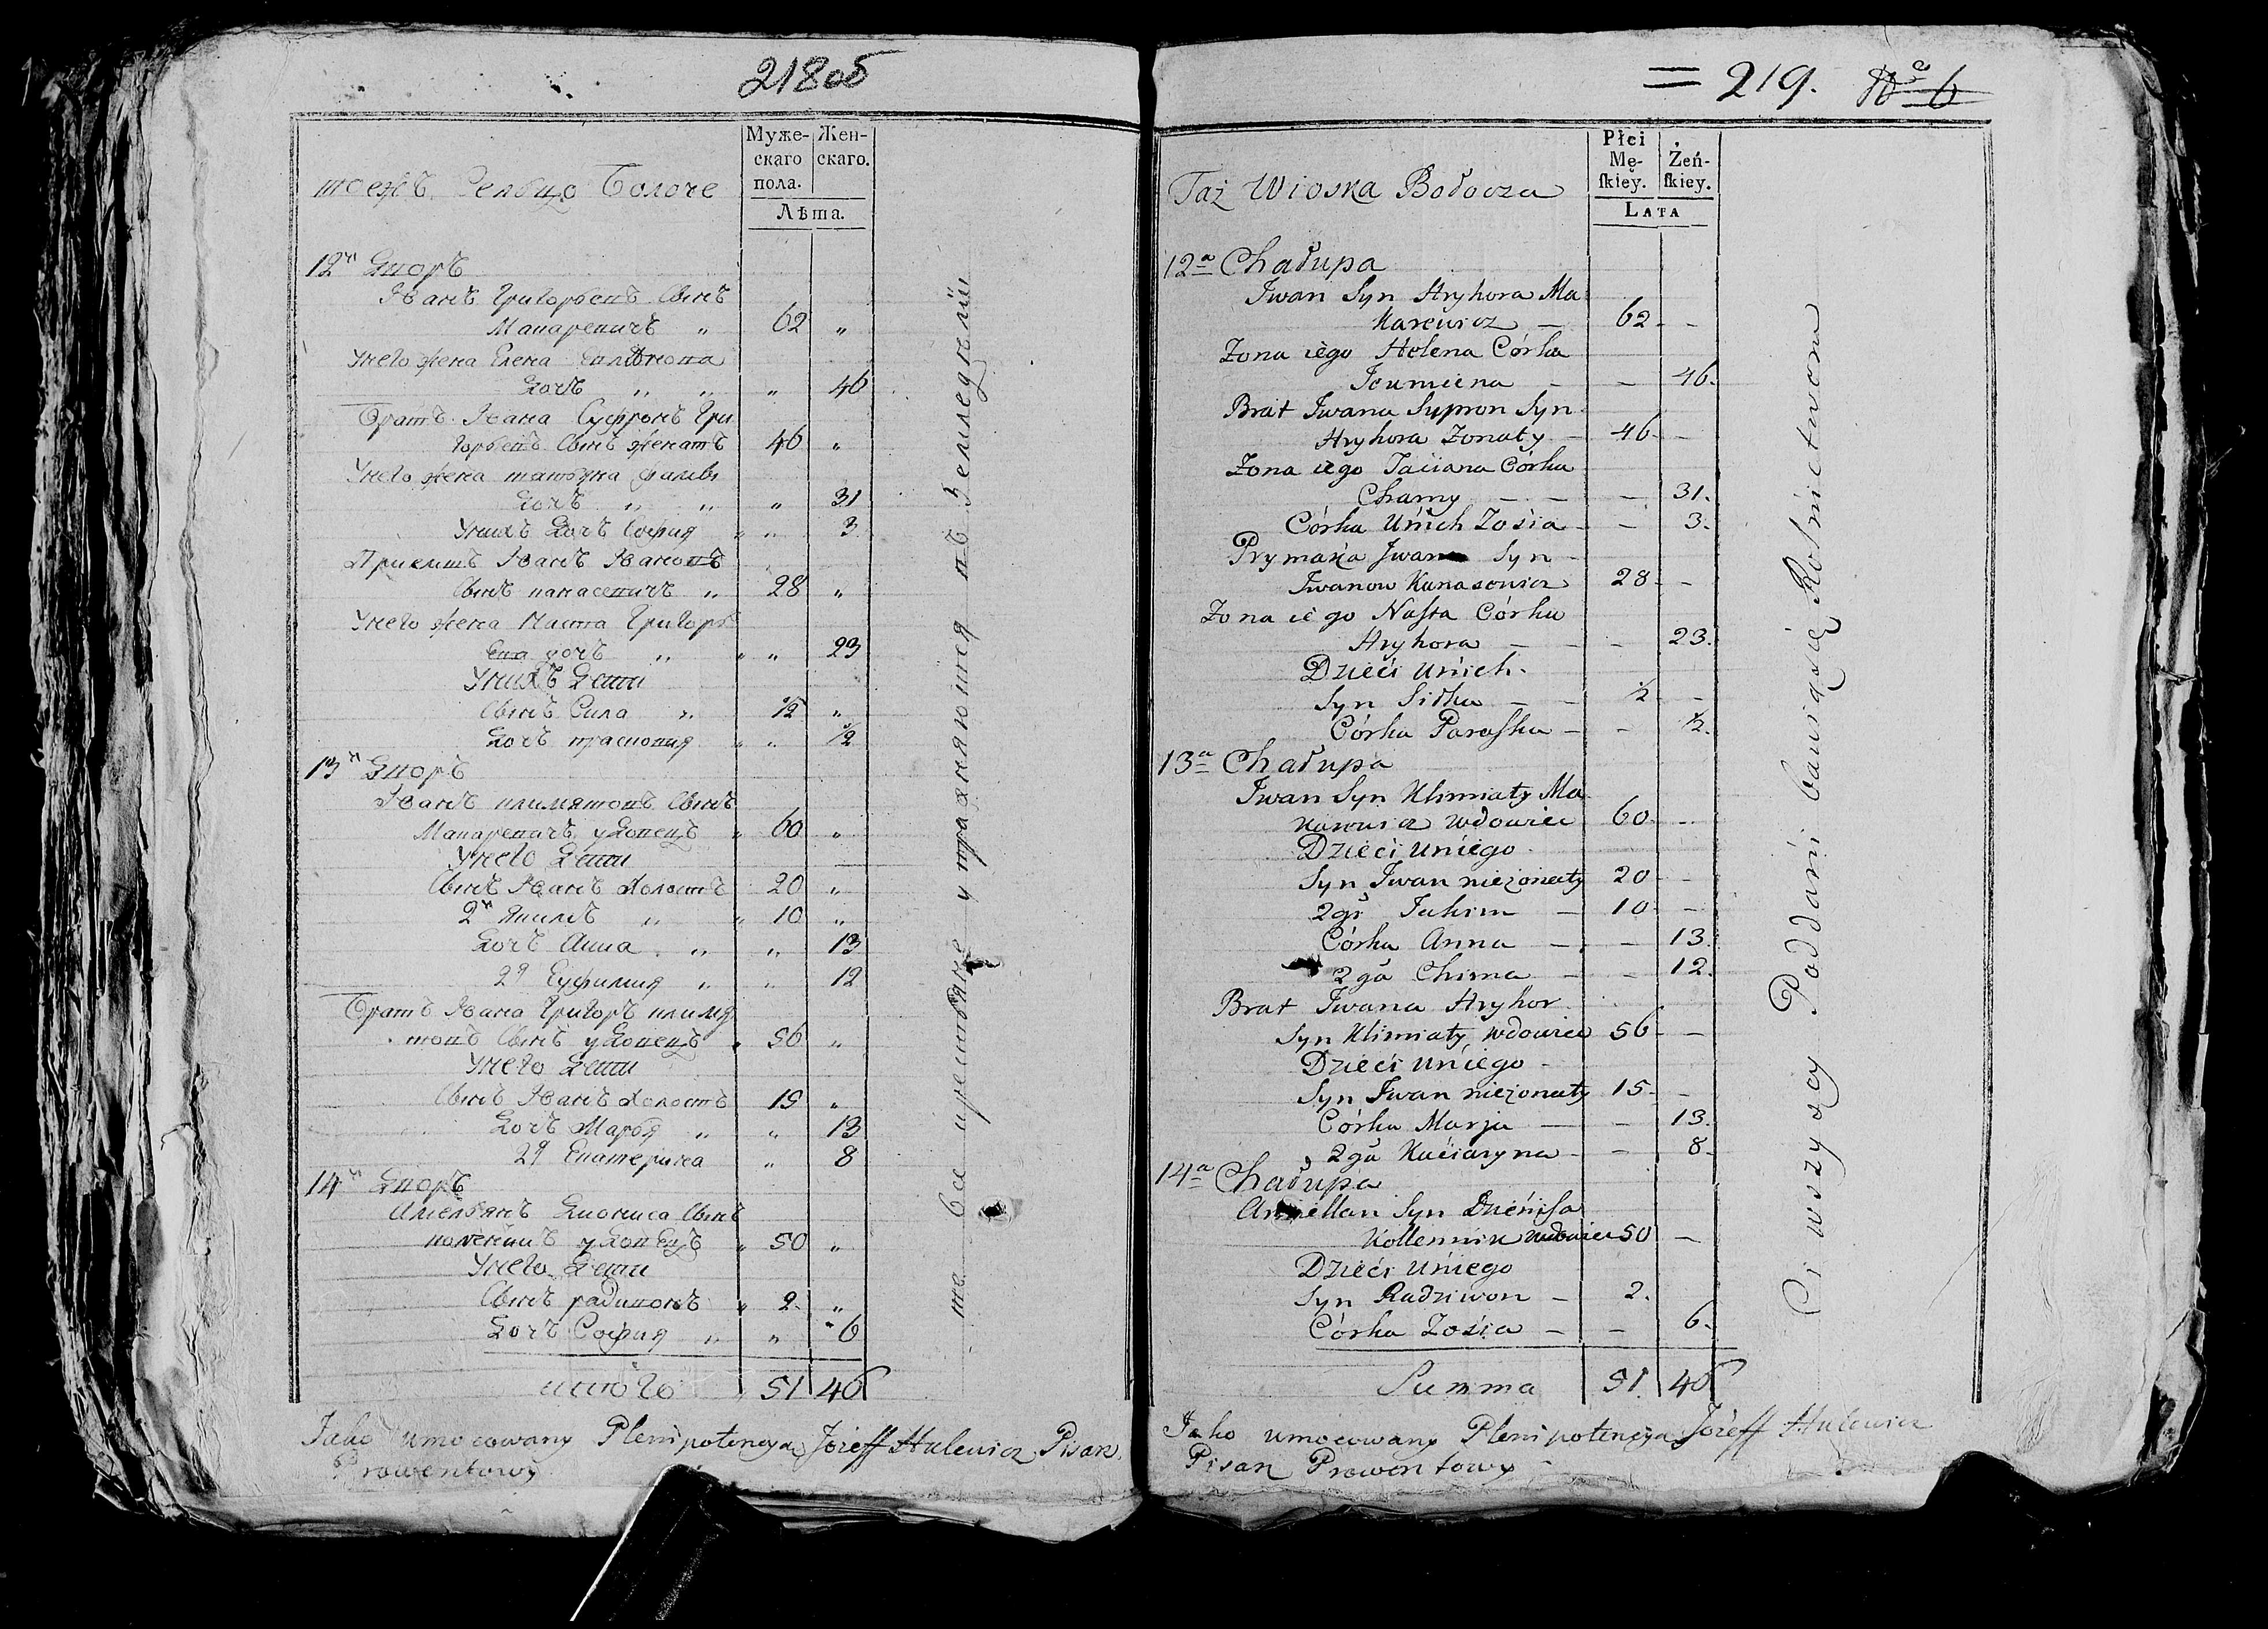 218 об
Муже-
скаго
пола.
Жен-
скаго.
Лѣта.
тоежъ Сельцо Болоче
12й Дворъ
Иванъ Григорьевъ Сынъ
Макаревичъ „ 62 „
Унего жена Елена
Дочь „ „ „ 46
Братъ Ивана Суфронъ Гри
горьевъ Сынъ женатъ 46 „
Унего жена татьяна
Дочь „ „ „ 31
Унихъ Дочь София „ „ 3
Приемышъ Иванъ Ивановъ
Сынъ панасевичъ „ 28 „
Унего жена Наста Григорь
ева дочь „ „ „ 23
Унихъ Дети
Сынъ Сила „ 1/2 „
Дочь прасковия „ „ 1/2
13й Дворъ
Иванъ климятовъ Сынъ
Макаревичъ удовецъ „ 60 „
Унего Дети
Сынъ Иванъ Холостъ 20 „
2й Якимъ „ „ 10 „
Дочь Анна „ „ 13
2я Еуфимия „ „ 12
Братъ Ивана Григоръ климя
товъ Сынъ удовецъ „ 56 „
Унего Дети
Сынъ Иванъ Холостъ 15 „
Дочь Марья „ „ 13
2я Екатерина „ 8
14й Дворъ
Имельянъ Диониса Сынъ
удовецъ „ 50 „
Унего Дети
Сынъ радивонъ „ 2 „
Дочь София „ „ 6
итого 51 46
упражняются въ Земледелии
Jako umocowany Plenipotencyą Jozeff Hulewicz Pisarz
Prowentowy
= 219. № 6
Płci
Mę-
skiey.
Żeń-
skiey.
LATA
Taż Wioska Bołocza
12a Chałupa
Iwan Syn Hryhora Ma
karewicz – 62 – –
Zona iego Helena Córka
Jeumiena – – 46.
Brat Iwana Supron Syn
Hryhora Zonaty – 46 – –
Zona iego Taciana Córka
Chamy – – – 31.
Córka Unich Zosia – – 3.
Prymaka Iwana Syn
Iwanow Kanasowicz 28 – –
Zona iego Nasta Córka
Hryhora – – – 23.
Dzieci Unich.
Syn Siłka – – 1/2 –
Córka Paraska – – 1/2.
13a Chałupa
Iwan Syn Klimiaty Ma
karewicz Wdowiec 60 – –
Dzieci Uniego
Syn Iwan nieżonaty 20 – –
2gi Jakim – 10 – –
Córka Anna – – 13.
2ga Chima – – 12.
Brat Iwana Hryhor
Syn Klimiaty Wdowiec 56 – –
Dzieci Uniego
Syn Iwan nieżonaty 15 – –
Córka Marja – – 13.
2ga Kaciaryna – – 8 –
14a Chałupa
Amiellan Syn Dzienisa
Kollennik Wdowiec 50 –
Dzieci Uniego
Syn Radziwon – 2.
Córka Zosia – – 6 –
Summa 51. 46
Ci wszyscy Poddani bawią się Rolnictwem
Jako umocowany Plenipotencyą Jozeff Hulewicz
Pisarz Prowentowy